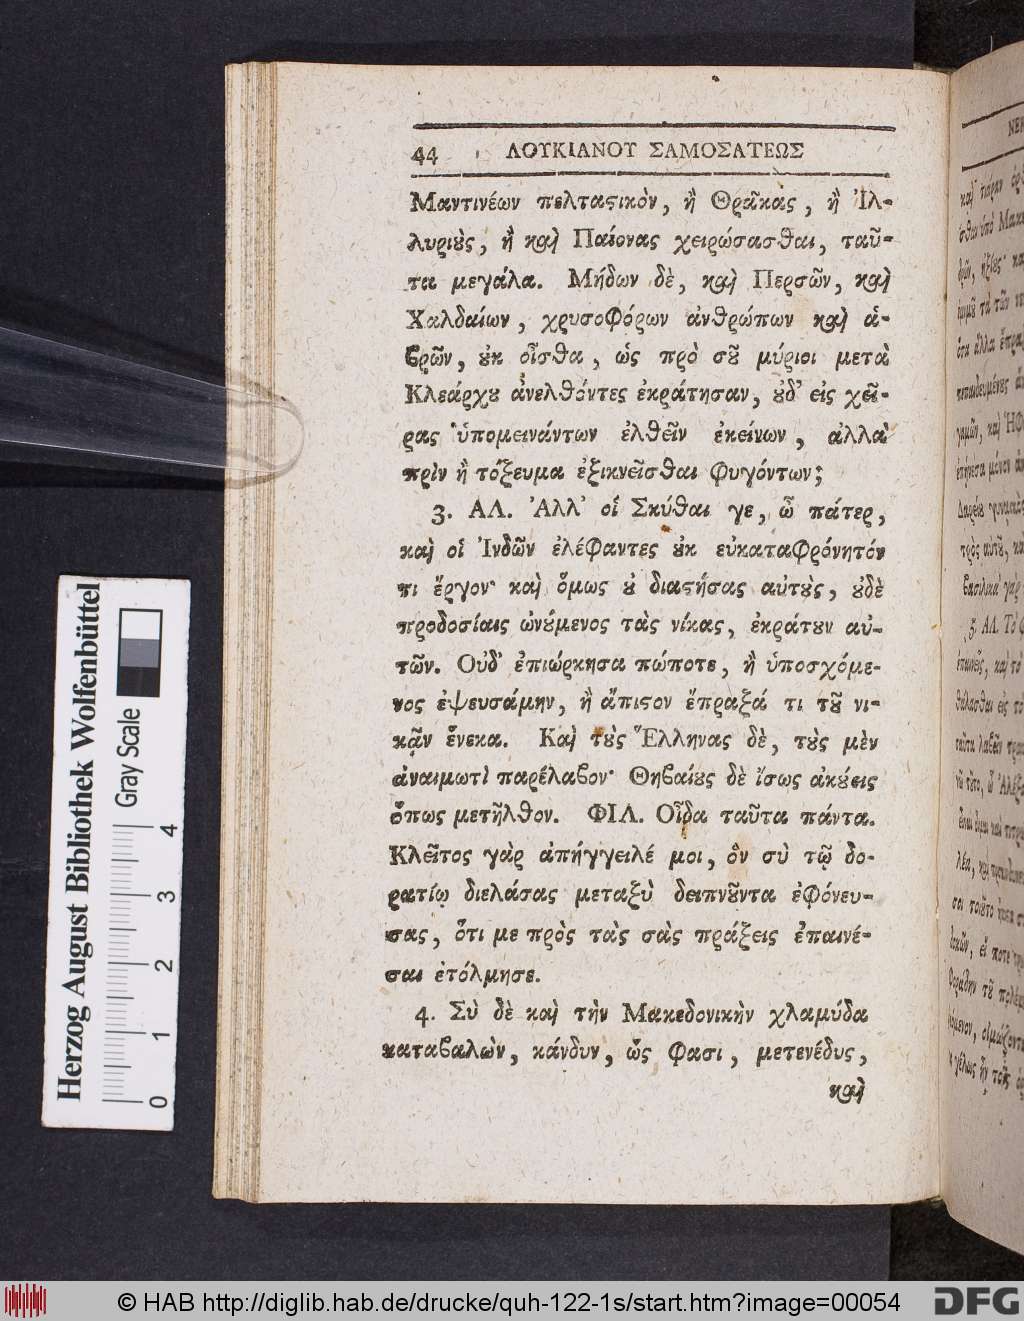 44 ΛΟΥΚΙΑΝΟΥ ΣΑΜΟΣΑΤΕΩΣ
Μαντινέων πελταϛικὸν, ἢ Θρᾶκας, ἢ Ἰλ-
λυριȣ̀ς, ἢ καὶ Παίονας χειρώσασθαι, ταῦ-
τα μεγάλα. Μήδων δὲ, καὶ Περσῶν, καὶ
Χαλδαίων, χρυσοφόρων ἀνθρώπων καὶ ἁ-
ϐρῶν, ȣ̓κ οἶσθα, ὡς πρὸ σȣ͂ μύριοι μετὰ
Κλεάρχȣ ἀνελθόντες ἐκράτησαν, ȣ̓δ' εἰς χεῖ-
ρας ὑπομεινάντων ἐλθεῖν ἐκείνων, ἀλλὰ
πρὶν ἢ τόξευμα ἐξικνεῖσθαι φυγόντων;
3. ΑΛ. Ἀλλ' οἱ Σκύθαι γε, ὦ πάτερ,
καὶ οἱ Ἰνδῶν ἐλέφαντες ȣ̓κ εὐκαταφρόνητόν
τι ἔργον· καὶ ὅμως ȣ̓ διαϛήσας αὐτȣ̀ς, ȣ̓δὲ
προδοσίαις ὠνȣ́μενος τὰς νίκας, ἐκράτȣν αὐ-
τῶν. Οὐδ' ἐπιώρκησα πώποτε, ἢ ὑποσχόμε-
νος ἐψευσάμην, ἢ ἄπιϛον ἔπραξά τι τȣ͂ νι-
κᾷν ἕνεκα. Καὶ τȣ̀ς Ἕλληνας δὲ, τȣ̀ς μὲν
ἀναιμωτὶ παρέλαϐον· Θηϐαίȣς δὲ ἴσως ἀκȣ́εις
ὅπως μετῆλθον. ΦΙΛ. Οἶδα ταῦτα πάντα.
Κλεῖτος γὰρ ἀπήγγειλέ μοι, ὃν σὺ τῷ δο-
ρατίῳ διελάσας μεταξὺ δειπνȣ͂ντα ἐφόνευ-
σας, ὅτι με πρὸς τὰς σὰς πράξεις ἐπαινέ-
σαι ἐτόλμησε.
4. Σὺ δὲ καὶ τὴν Μακεδονικὴν χλαμύδα
καταϐαλὼν, κάνδυν, ὥς φασι, μετενέδυς,
καὶ
Herzog August Bibliothek Wolfenbüttel
Gray Scale
0 1 2 3 4
© HAB http://diglib.hab.de/drucke/quh-122-1s/start.htm?image=00054
HAB
DFG